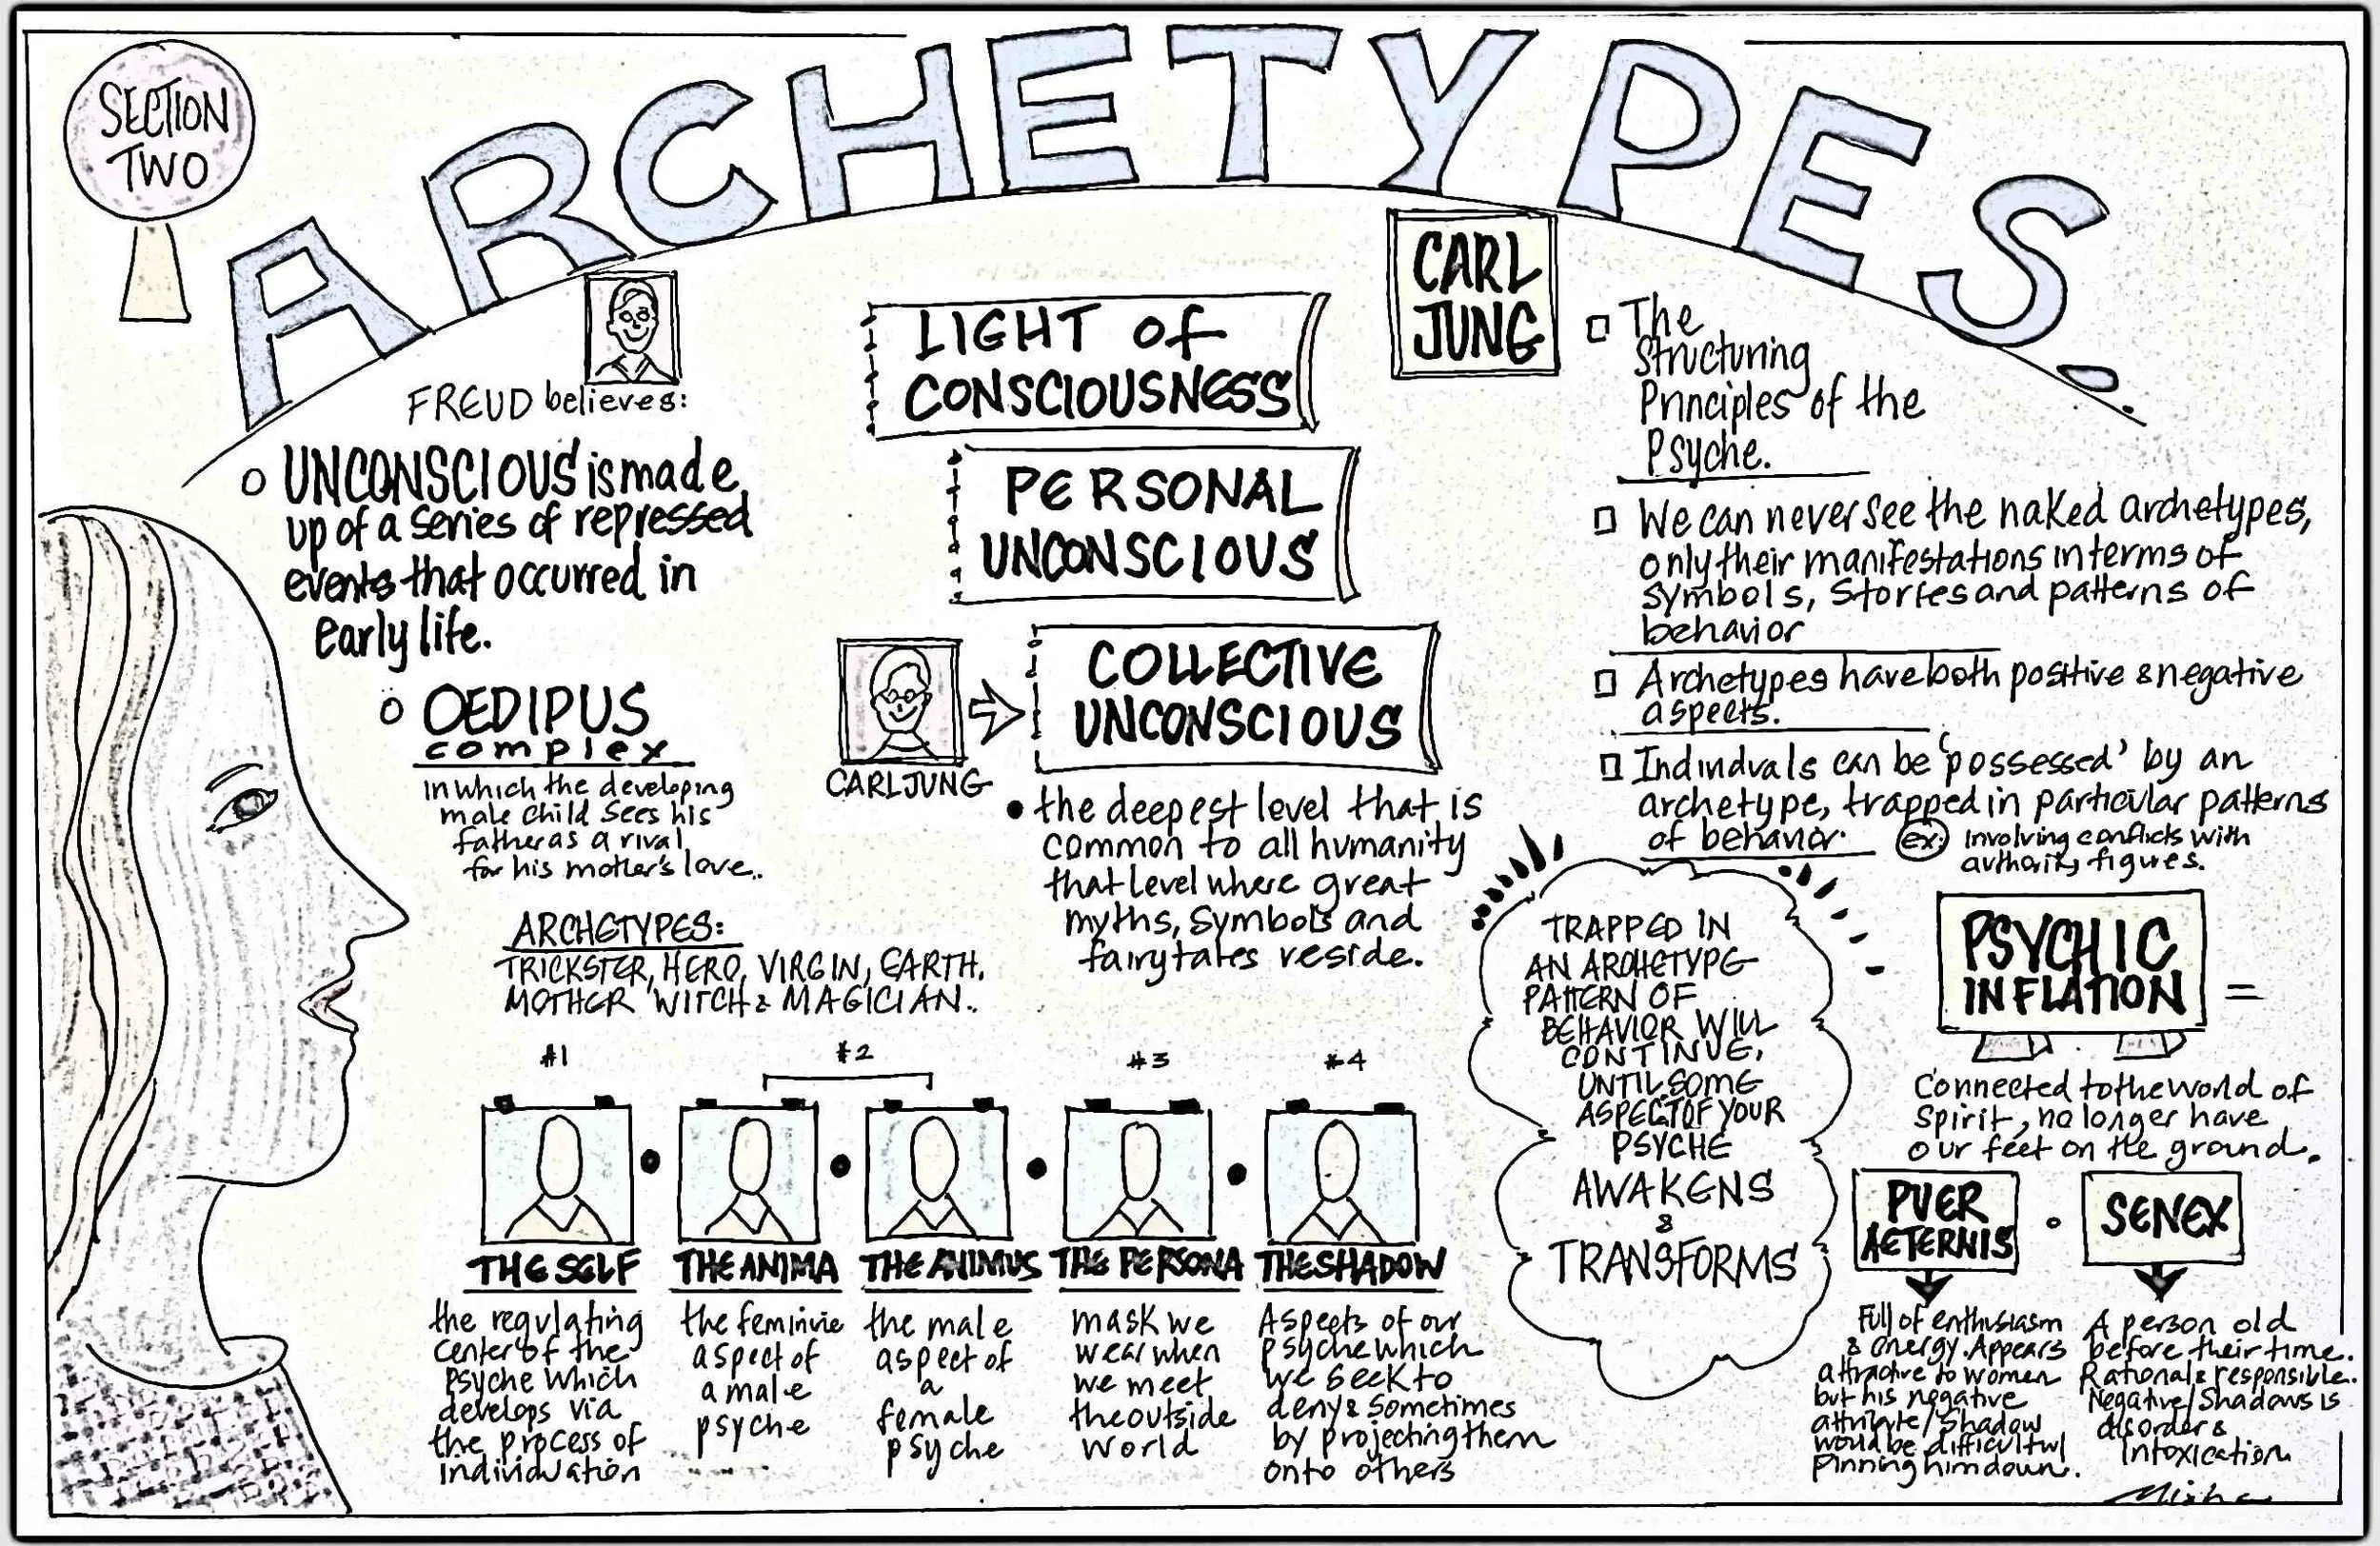 SECTION
TWO
ARCHETYPES.
FREUD believes:
UNCONSCIOUS is made
up of a series of repressed
events that occurred in
early life.
OEDIPUS
complex
in which the developing
male child sees his
father as a rival
for his mother's love..
ARCHETYPES:
TRICKSTER, HERO, VIRGIN, EARTH.
MOTHER WITCH & MAGICIAN..
LIGHT of
CONSCIOUSNESS
PERSONAL
UNCONSCIOUS
COLLECTIVE
UNCONSCIOUS
CARL JUNG
the deepest level that is
common to all humanity
that level where great
myths, symbols and
fairytales reside.
CARL
JUNG
The
Structuring
Principles of the
Psyche.
We can never see the naked archetypes,
only their manifestations in terms of
symbols, stories and patterns of
behavior
Archetypes have both positive & negative
aspects.
Individuals can be 'possessed' by an
archetype, trapped in particular patterns
of behavior.
ex: involving conflicts with
authority figures.
TRAPPED IN
AN ARCHETYPE
PATTERN OF
BEHAVIOR WILL
CONTINUE,
UNTIL SOME
ASPECT OF YOUR
PSYCHE
AWAKENS
&
TRANSFORMS
PSYCHIC
INFLATION =
Connected to the world of
Spirit, no longer have
our feet on the ground.
#1
#2
#3
#4
THE SELF
the regulating
center of the
psyche which
develops via
the process of
individuation
THE ANIMA
the feminine
aspect of
a male
psyche
THE ANIMUS
the male
aspect of
a
female
psyche
THE PERSONA
mask we
wear when
we meet
the outside
world
THE SHADOW
Aspects of our
psyche which
we seek to
deny & sometimes
by projecting them
onto others
PUER
AETERNIS
Full of enthusiasm
& energy. Appears
attractive to women
but his negative
attribute/Shadow
would be difficultwl
pinning him down.
SENEX
A person old
before their time.
Rational & responsible.
Negative/Shadows is
disorder &
intoxication
Misha